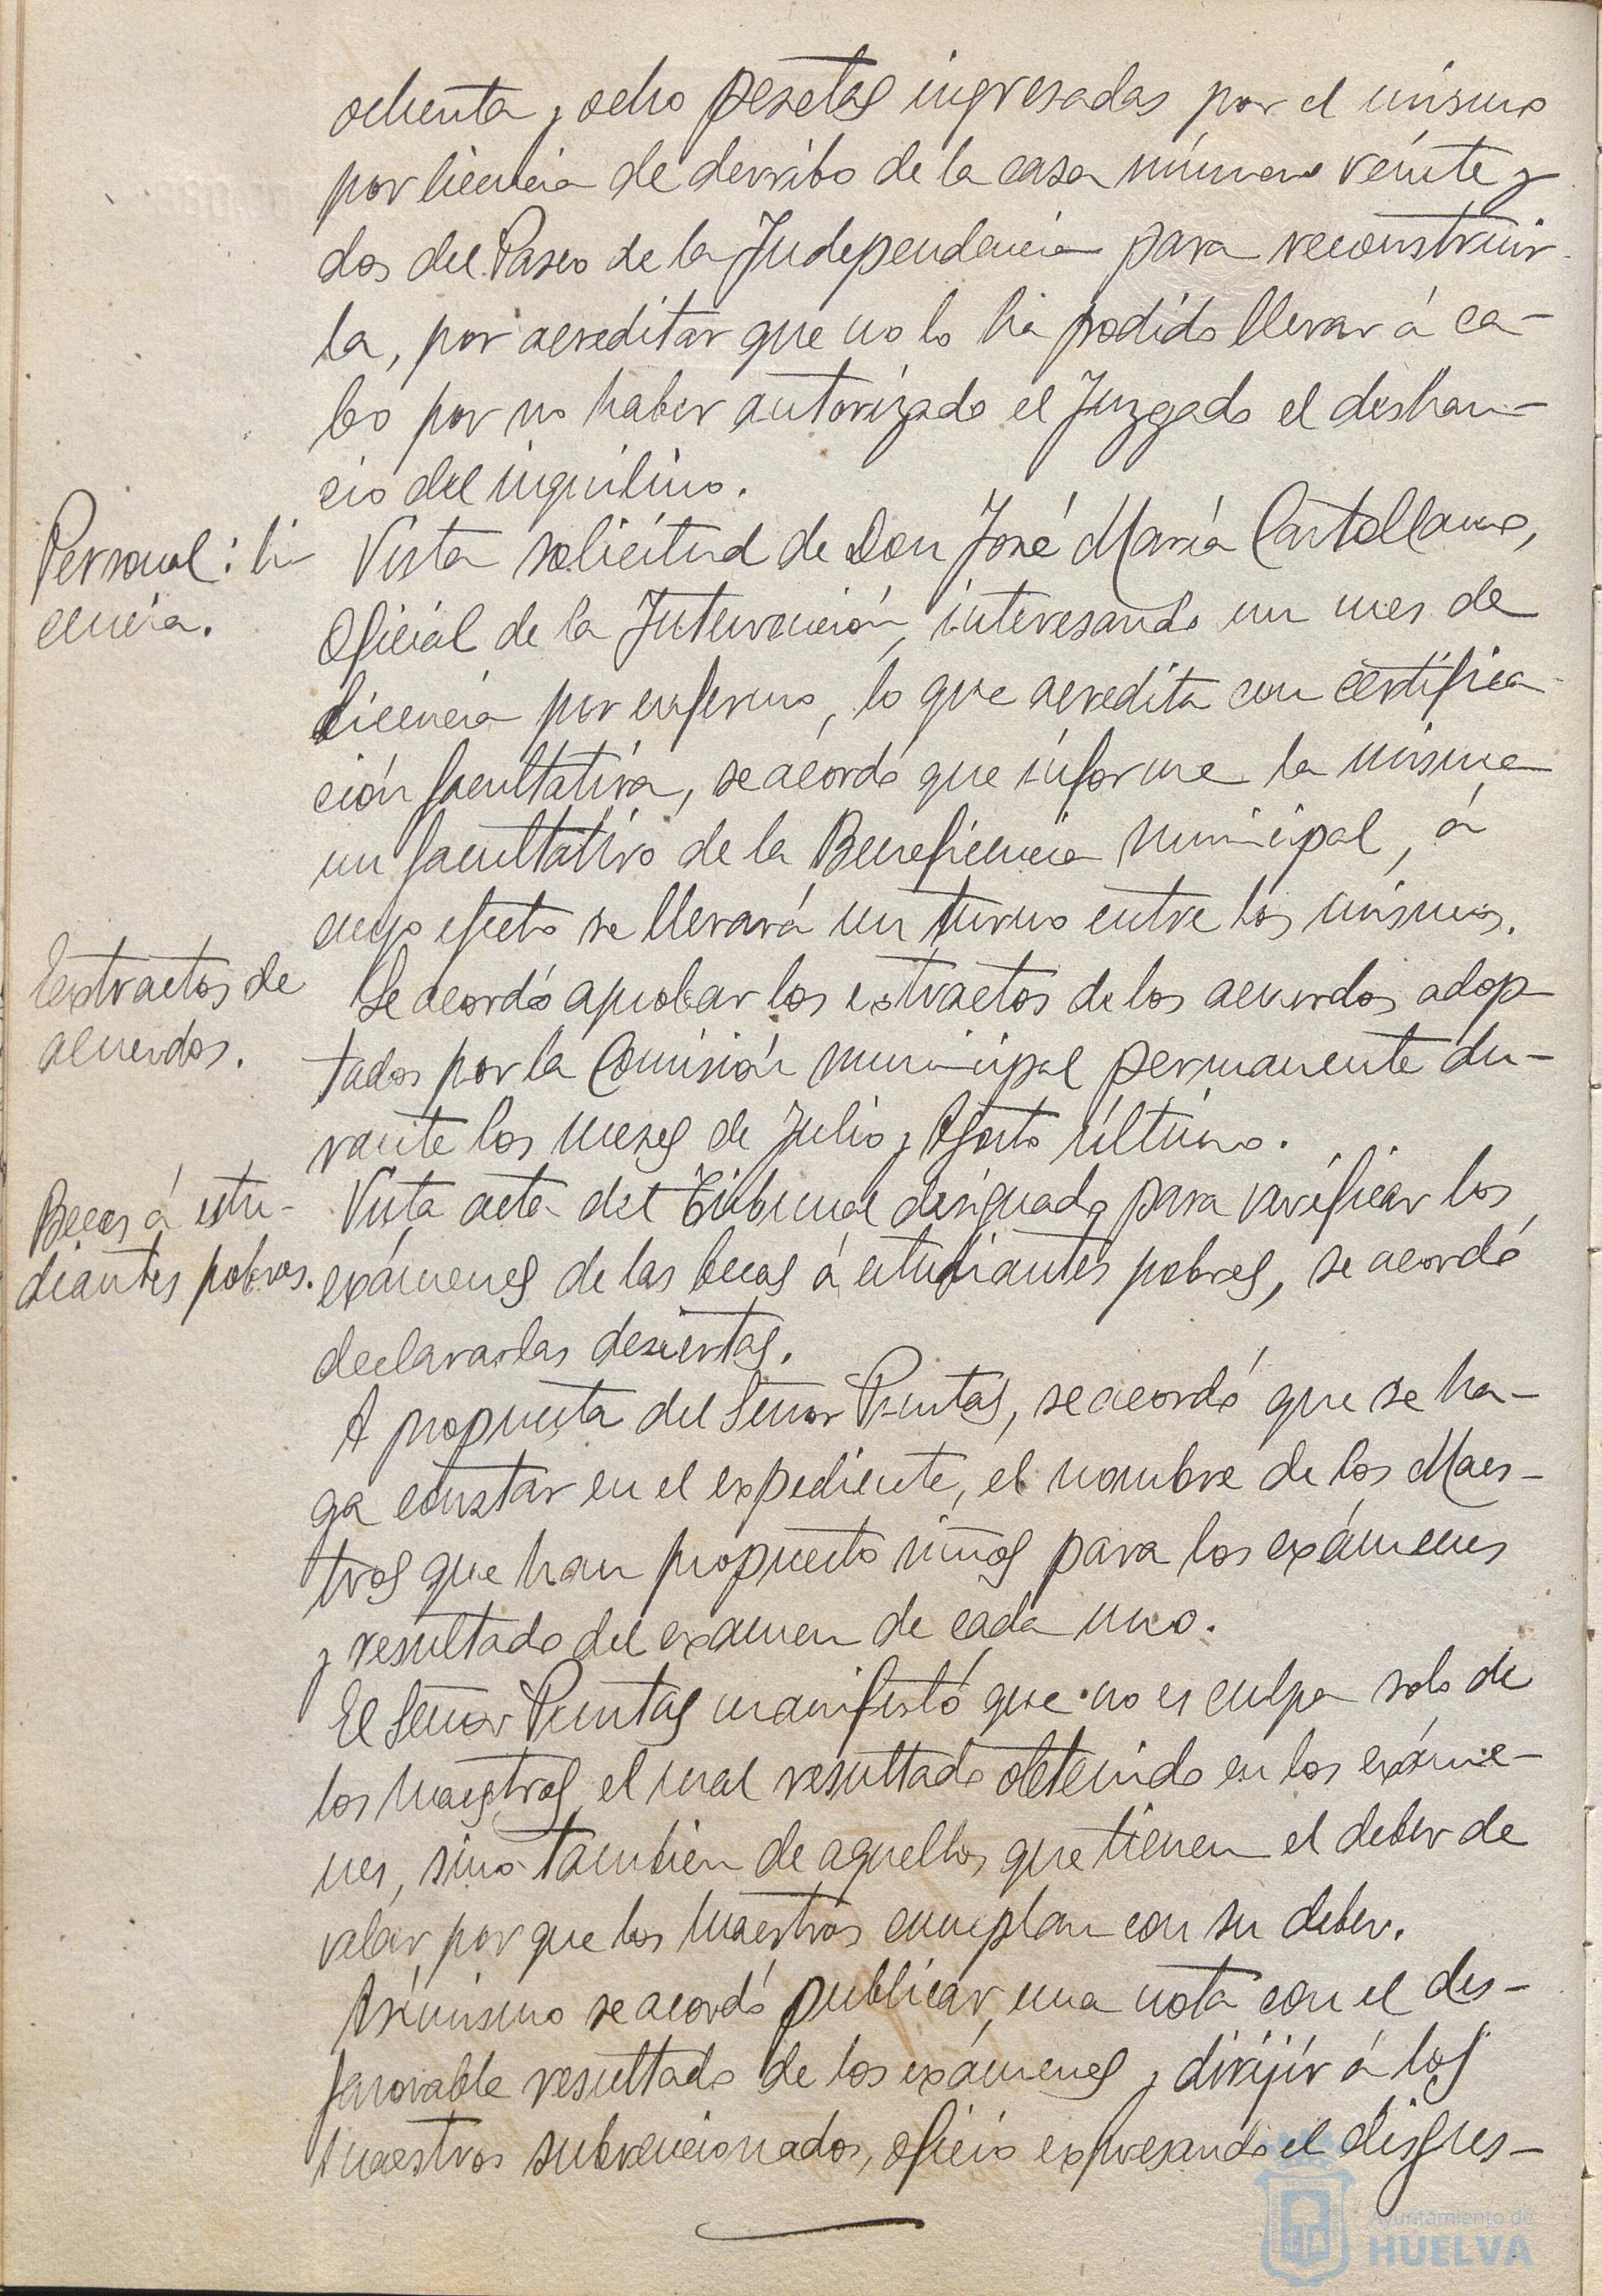 ochenta y ocho pesetas ingresadas por el mismo
por licencia de derribo de la casa número veinte y
dos del Paseo de la Independencia para reconstruir-
la, por acreditar que no lo ha podido llevar á ca-
bo por no haber autorizado el Juzgado el deshau-
cio del inquilino.
Personal: li-
cencia.
Vista solicitud de Don José María Castellano,
Oficial de la Intervención, interesando un mes de
licencia por enfermo, lo que acredita con certifica-
ción facultativa, se acordó que informe la misma
un facultativo de la Beneficencia municipal, á
cuyo efecto se llevará un turno entre los mismos.
Extractos de
acuerdos.
Se acordó aprobar los extractos de los acuerdos adop-
tados por la Comisión municipal permanente du-
rante los meses de Julio y Agosto último.
Becas á estu-
diantes pobres.
Vista acta del Tribunal designado para verificar los
exámenes de las becas á estudiantes pobres, se acordó
declararlas desiertas.
A propuesta del Señor Puntas, se acordó que se ha-
ga constar en el expediente, el nombre de los Maes-
tros que han propuesto niños para los exámenes
y resultado del examen de cada uno.
El Señor Puntas manifestó que no es culpa solo de
los maestros el mal resultado obtenido en los exáme-
nes, sino también de aquellos que tienen el deber de
velar, por que los maestros cumplan con su deber.
Asimismo se acordó publicar, una nota con el des-
favorable resultado de los exámenes y dirijir á los
maestros subvencionados, oficio expresando el disgus-
Ayuntamiento de
HUELVA